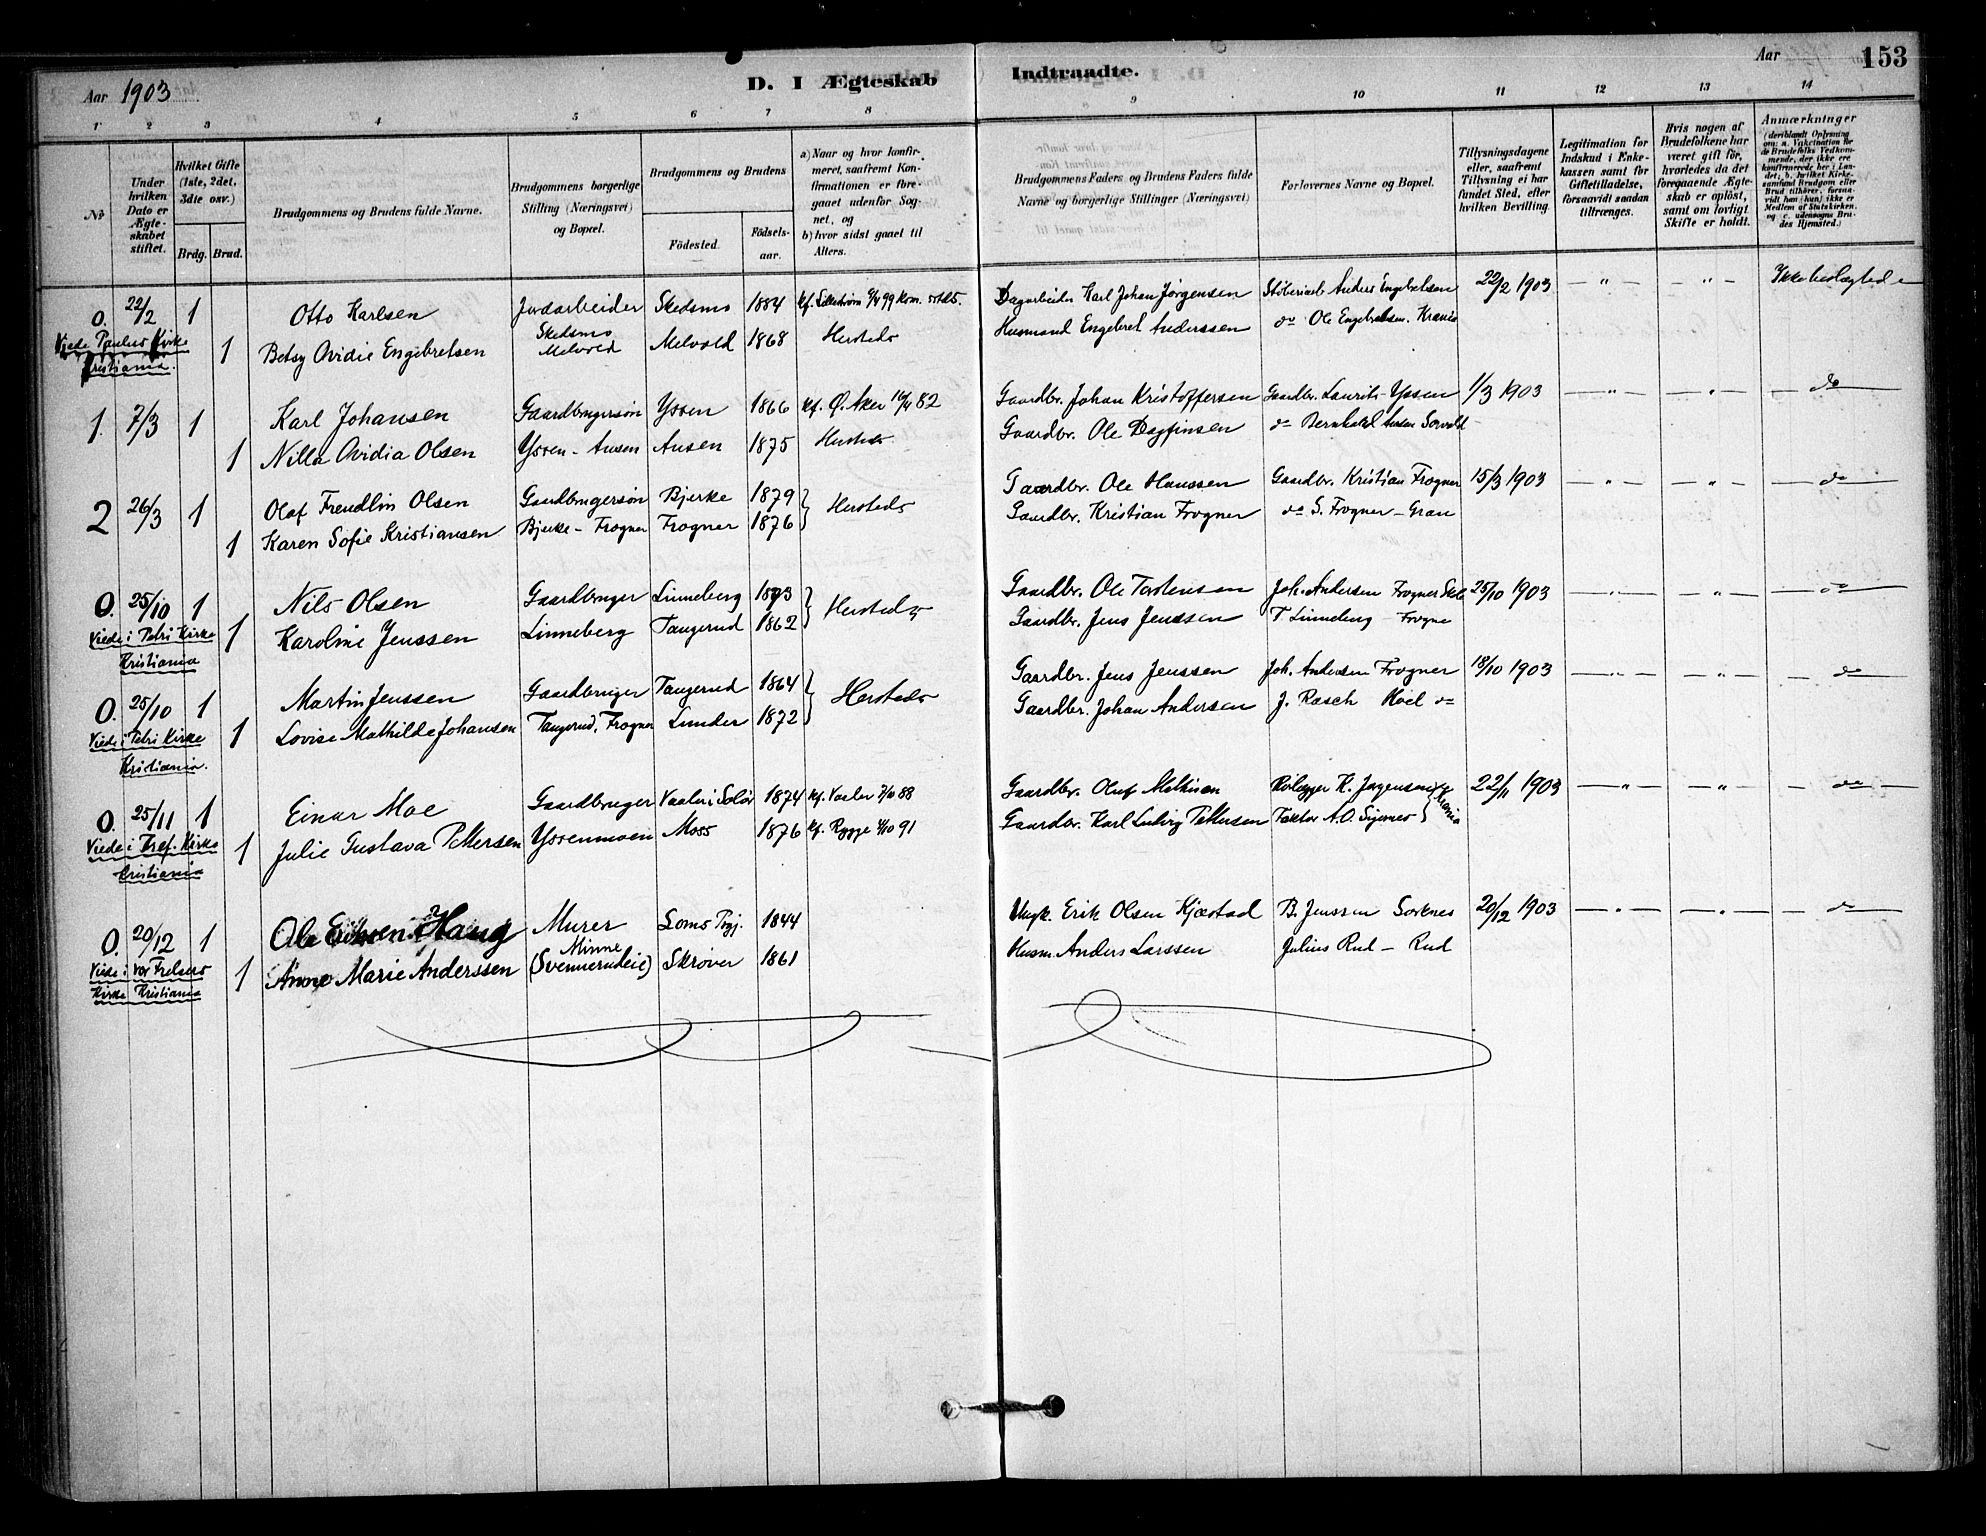 Aar 1903
D. I Ægteskab Indtraadte.
Aar
153
1 2 3 4 5 6 7 8 9 10 11 12 13 14
No
Under hvilken Dato er Ægteskabet stiftet.
Hvilket Gifte (1ste, 2det, 3die osv.)
Brdg. Brud.
Brudgommens og Brudens fulde Navne.
Brudgommens borgerlige Stilling (Næringsvei) og Bopæl.
Brudgommens og Brudens
Födested.
Födselsaar.
a) Naar og hvor konfirmeret, saafremt Konfirmationen er foregaaet udenfor Sognet, og
b) hvor sidst gaaet til Alters.
Brudgommens Faders og Brudens Faders fulde Navne og borgerlige Stillinger (Næringsvei)
Forlovernes Navne og Bopæl.
Tillysningsdagene eller, saafremt Tillysning ei har fundet Sted, efter hvilken Bevilling.
Legitimation for Indskud i Enkekassen samt for Giftetilladelse, forsaavidt saadan tiltrænges.
Hvis nogen af Brudefolkene har været gift för, hvorledes da det foregaaende Ægteskab er oplöst, samt om lovligt Skifte er holdt.
Anmærkninger
(deriblandt Oplysning om: a. Vaktination for de Brudefolks Vedkommende, der ikke ere konfirmerede her i Landet, b. hvilket Kirkesamfund Brudgom eller Brud tilhörer, forsaavidt han (hun) ikke er Medlem af Statskirken, og c. udensogns Brudes Hjemsted.)
0. 22/2 1 Otto Karlsen Jordarbeider Skedsmo 1884 Dagarbeider Karl Johan Jørgensen Anders Engebretsen 22/2 1903 — " — — " — Ikke
Viede Paulus Kirke Kristiania.
1 Betsy Ovidie Engebretsen Skedsmo Melvold Melvold 1868 Hersteds Husmand Engebret Anderssen do Ole Engebretsen. Krania
1. 7/3 1 Karl Johansen Gaardbrugersøn Yssen 1866 Kf. Ø. Aker 16/4 82 Gaardbr. Johan Kristoffersen Gaardbr. Laurits Yssen 1/3 1903 — " — — " — do
1 Nilla Ovidia Olsen Yssen - Ausen Ausen 1875 Hersteds Gaardbr. Ole Dagfinsen do
2 26/3 1 Olaf Frendlin Olsen Gaardbrugersøn Bjerke 1879 Hersteds Gaardbr. Ole Hanssen Gaardbr. Kristian Frogner 15/3 1903 — " — — " — do
1 Karen Sofie Kristiansen Bjerke - Frogner Frogner 1876 Gaardbr. Kristian Frogner do S. Frogner - Grau
0. 25/10 1 Nils Olsen Gaardbruger Linneberg 1873 Hersteds Gaardbr. Ole Torstensen Joh. Andersen Frogner 25/10 1903 — " — — " — do
Viede i Petri Kirke Kristiania
1 Karoline Jenssen Linneberg Tangerud 1862 Gaardbr. Jens Jenssen T. Linneberg - Frogner
0. 25/10 1 Martin Jenssen Gaardbruger Tangerud 1864 Hersteds Gaardbr. Jens Jenssen Joh. Andersen Frogner 18/10 1903 — " — — " — do
Viede i Petri Kirke Kristiania.
1 Lovise Mathilde Johansen Tangerud, Frogner Lunder 1872 Gaardbr. Johan Andersen J. Rasch Hoel do
0. 25/11 1 Einar Moe Gaardbruger Vaaler i Solør 1874 Kf. Vaaler 88 Gaardbr. Oluf 22/11 1903 — " — — " — do
Viede i Tref. Kirke Kristiania
1 Julie Gustava Pettersen Yssenmoen Moss 1876 Kf. Rygge 4/10 91 Gaardbr. Karl Ludvig Pettersen Faktor A.O.
0. 20/12 1 Ole Eriksen Haug Murer 1844 Erik Olsen Kjæstad B. Jenssen Sørenes 20/12 1903 — " — — " — do
Viede i Vor Frelsers Kirke Kristiania
1 Anne Marie Anderssen Minne (Svennerudeie) Skrøver 1861 Husm. Anders Larssen Julius Rud - Rud